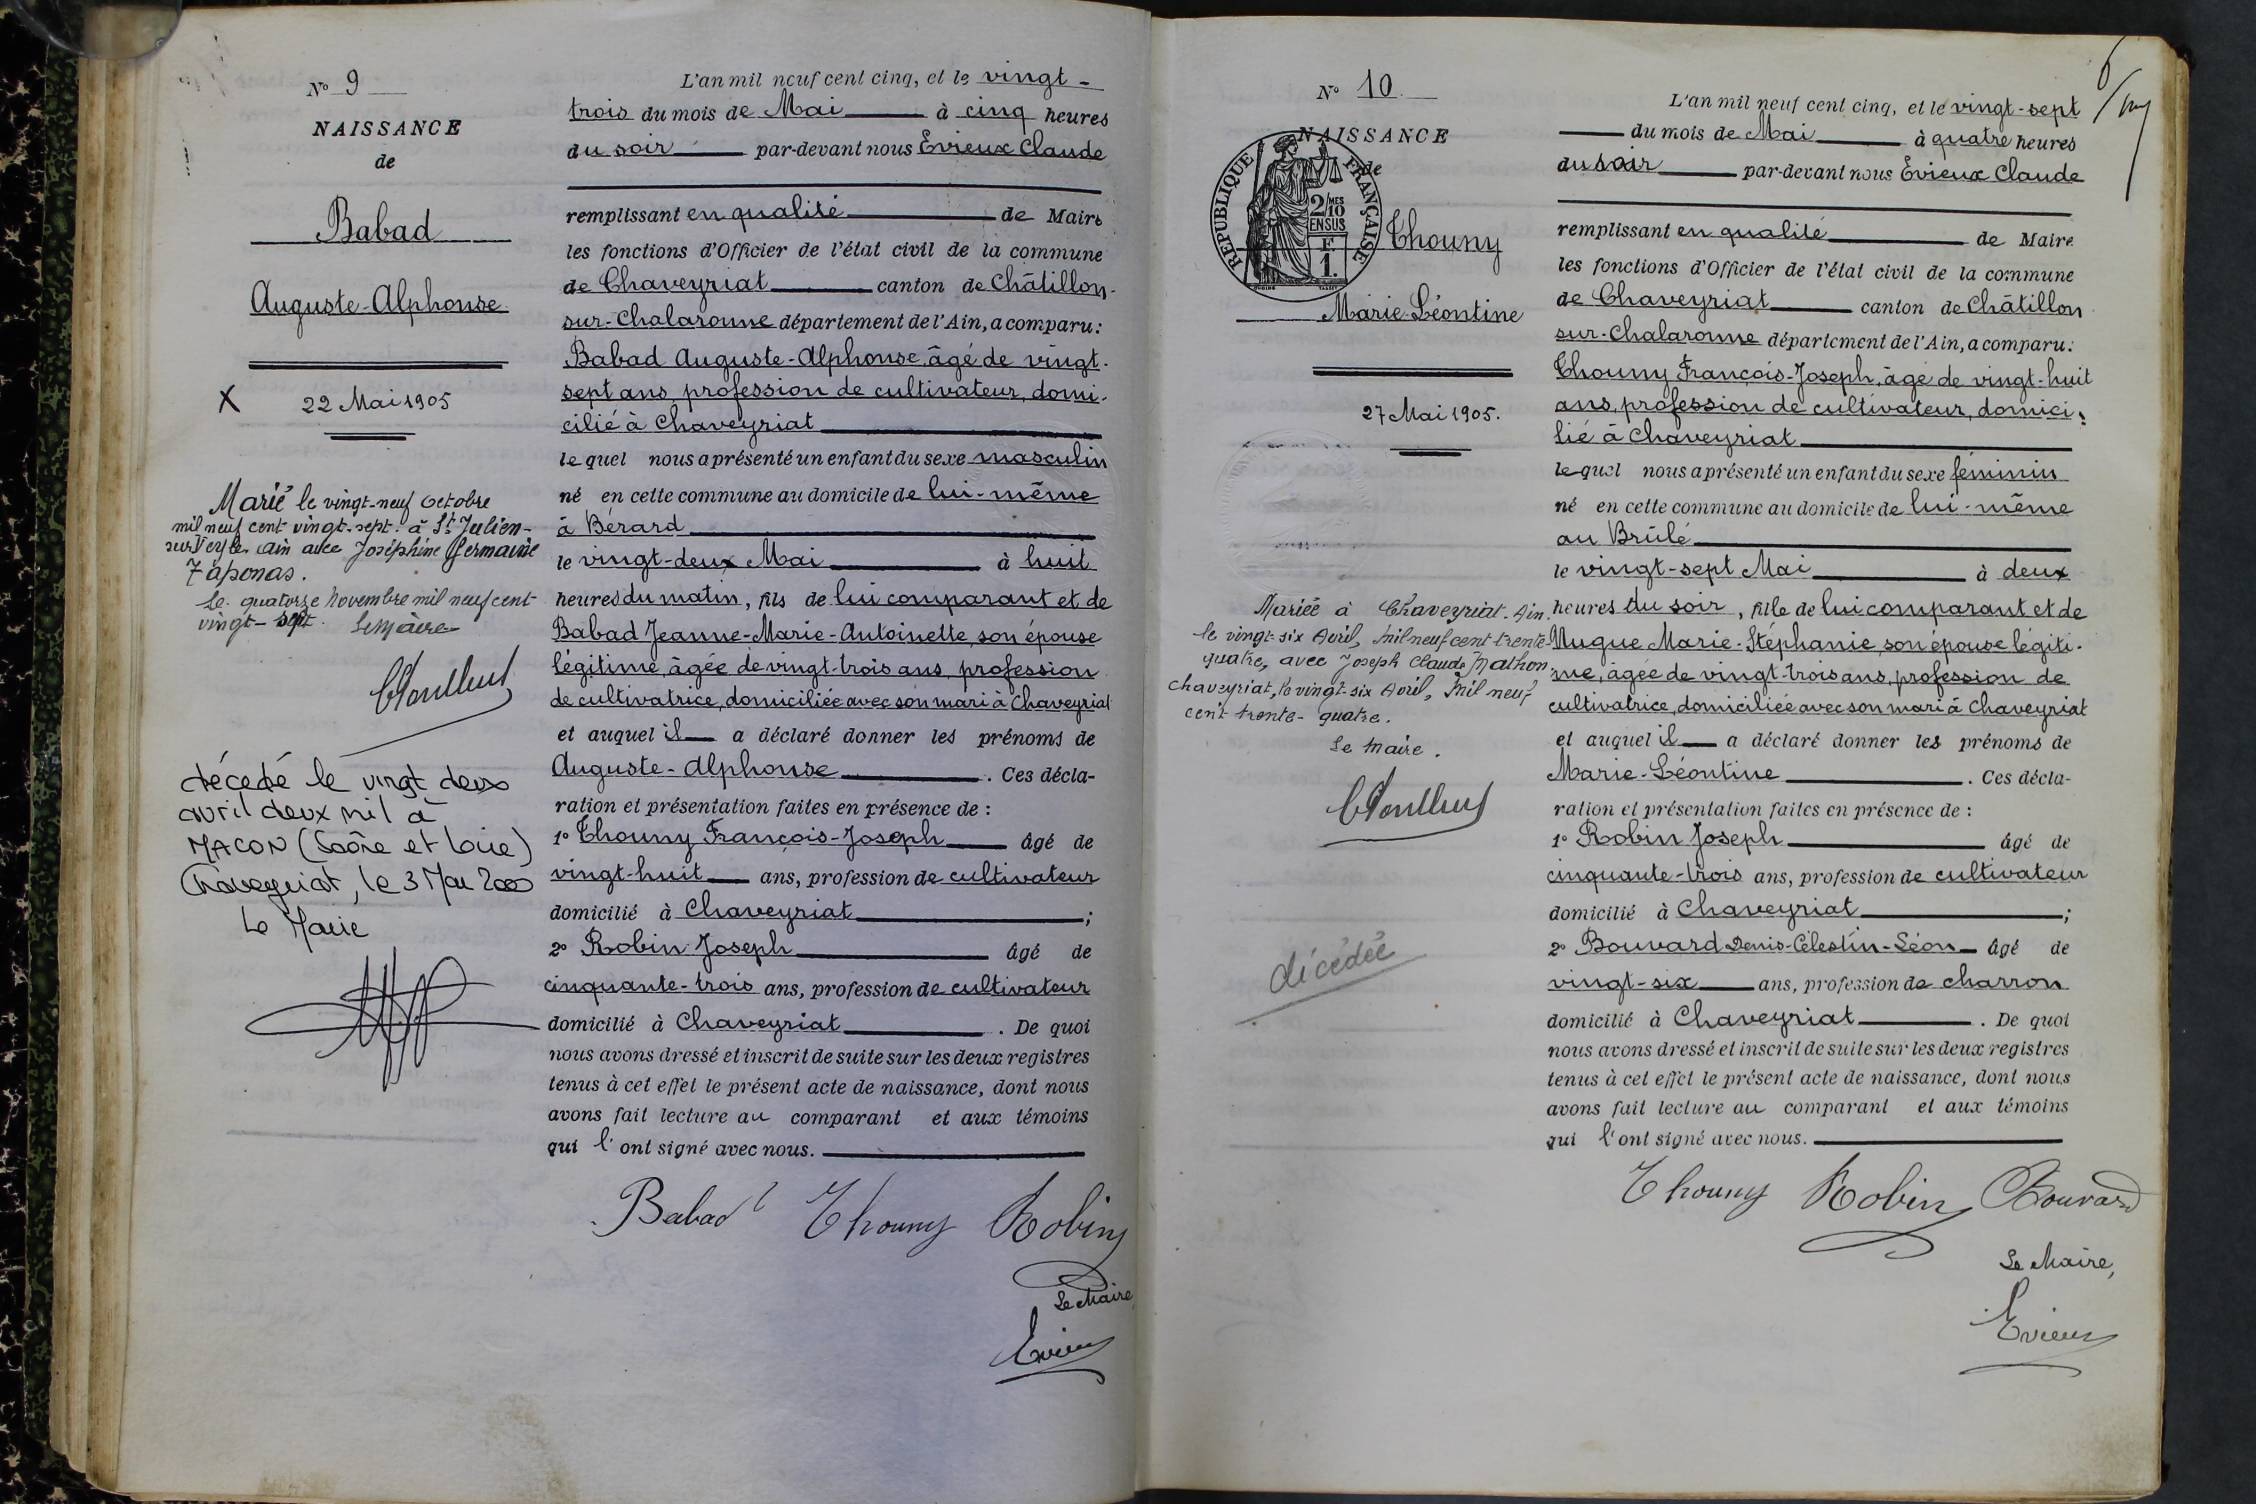 N° 9
NAISSANCE
de
Babad
Auguste-Alphonse
X 22 Mai 1905
Marié le vingt-neuf Octobre
mil neuf cent vingt-sept à St Julien-
sur Veyle Ain avec Joséphine Germaine
Taponas.
Le quatorze novembre mil neuf cent
vingt-sept. Le Maire
décédé le vingt deux
avril deux mil à
MACON (Saône et Loire)
Chaveyriat, le 3 Mai 2000
Le Maire
L'an mil neuf cent cinq, et le vingt-
trois du mois de Mai à cinq heures
du soir par-devant nous Evieux Claude
remplissant en qualité de Maire
les fonctions d'Officier de l'état civil de la commune
de Chaveyriat canton de Châtillon-
sur-Chalaronne département de l'Ain, a comparu:
Babad Auguste-Alphonse, âgé de vingt-
sept ans, profession de cultivateur, domi-
cilié à Chaveyriat
lequel nous a présenté un enfant du sexe masculin
né en cette commune au domicile de lui-même
à Bérard
le vingt-deux Mai à huit
heures du matin, fils de lui comparant et de
Babad Jeanne-Marie-Antoinette, son épouse
légitime, âgée de vingt-trois ans, profession
de cultivatrice, domiciliée avec son mari à Chaveyriat
et auquel il a déclaré donner les prénoms de
Auguste-Alphonse. Ces décla-
ration et présentation faites en présence de :
1° Thouny François-Joseph âgé de
vingt-huit ans, profession de cultivateur
domicilié à Chaveyriat ;
2° Robin Joseph âgé de
cinquante-trois ans, profession de cultivateur
domicilié à Chaveyriat . De quoi
nous avons dressé et inscrit de suite sur les deux registres
tenus à cet effet le présent acte de naissance, dont nous
avons fait lecture au comparant et aux témoins
qui l'ont signé avec nous.
Babad Thouny Robin
Le Maire,
Evieux
N° 10
NAISSANCE
de
REPUBLIQUE FRANÇAISE
2/MES
10
EN SUS
F.
1.
Thouny
Marie-Léontine
27 Mai 1905.
Mariée à Chaveyriat. Ain.
le vingt-six Avril, mil neuf cent trente-
quatre, avec Joseph Claude Mathon.
Chaveyriat, le vingt-six Avril, mil neuf
cent trente-quatre.
Le Maire.
décédée
6
L'an mil neuf cent cinq, et le vingt-sept
du mois de Mai à quatre heures
du soir par-devant nous Evieux Claude
remplissant en qualité de Maire
les fonctions d'Officier de l'état civil de la commune
de Chaveyriat canton de Châtillon
sur-Chalaronne département de l'Ain, a comparu:
Thouny François-Joseph, âgé de vingt-huit
ans, profession de cultivateur, domici-
lié à Chaveyriat
lequel nous a présenté un enfant du sexe féminin
né en cette commune au domicile de lui-même
au Brûlé
le vingt-sept Mai à deux
heures du soir, fille de lui comparant et de
Nugue Marie-Stéphanie son épouse légiti-
me, âgée de vingt-trois ans, profession de
cultivatrice, domiciliée avec son mari à Chaveyriat
et auquel il a déclaré donner les prénoms de
Marie-Léontine. Ces décla-
ration et présentation faites en présence de :
1° Robin Joseph âgé de
cinquante-trois ans, profession de cultivateur
domicilié à Chaveyriat ;
2° Bouvard Denis-Célestin-Léon âgé de
vingt-six ans, profession de charron
domicilié à Chaveyriat . De quoi
nous avons dressé et inscrit de suite sur les deux registres
tenus à cet effet le présent acte de naissance, dont nous
avons fait lecture au comparant et aux témoins
qui l'ont signé avec nous.
Thouny Robin Bouvard
Le Maire,
Evieux